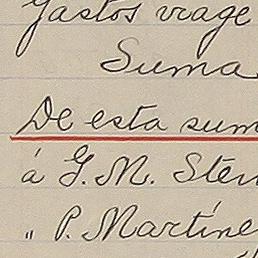 Gastos viage
Suma
De esta sum
á G. M. Sten
" P. Martíne